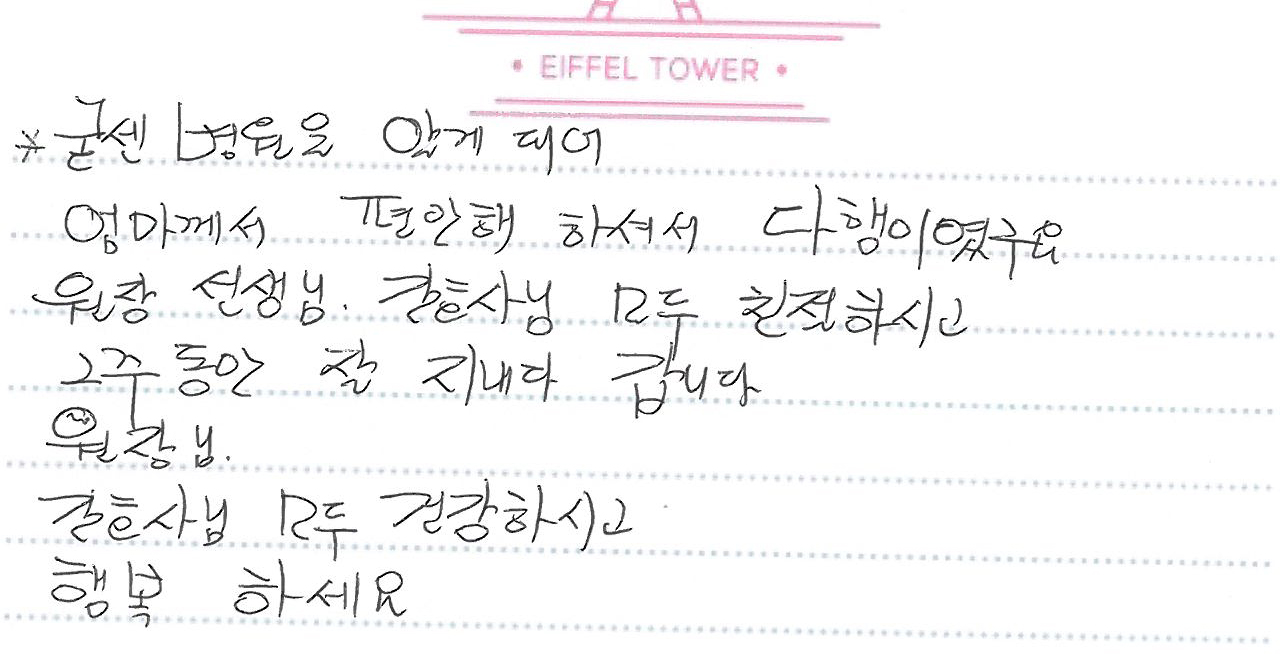 • EIFFEL TOWER •
*굳센 병원을 알게 되어
엄마께서 편안해 하셔서 다행이였구요
원장 선생님. 간호사님 모두 친절하시고
2주 동안 잘 지내다 갑니다
원장님.
간호사님 모두 건강하시고
행복 하세요